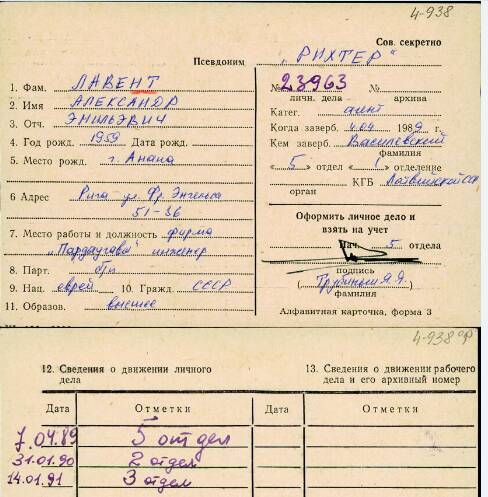 4-938
Сов. секретно
Псевдоним „РИХТЕР"
1. Фам. ЛАВЕНТ
2. Имя АЛЕКСАНДР
3. Отч. ЭМИЛЬЕВИЧ
4. Год рожд. 1959 Дата рожд.
5. Место рожд. г. Анапа
6 Адрес Рига ул Фр. Энгельса
51-36
7. Место работы и должность фирма
„Пардаугава" инженер
8. Парт. б/п
9. Нац. еврей 10. Гражд. СССР
11. Образов. высшее
№ 23963 №
личн. дела архива
Катег. агент
Когда заверб. 4.04 1989 г.
Кем заверб. Василевский
фамилия
« 5 » отдел « 1 » отделение
КГБ Латвийской ССР
орган
Оформить личное дело и
взять на учет
Нач. 5 отдела
подпись
( Я.Я. )
фамилия
Алфавитная карточка, форма 3
4-938 об
12. Сведения о движении личного
дела
13. Сведения о движении рабочего
дела и его архивный номер
Дата Отметки Дата Отметки
7.04.89 5 отдел
31.01.90 2 отдел
14.01.91 3 отдел